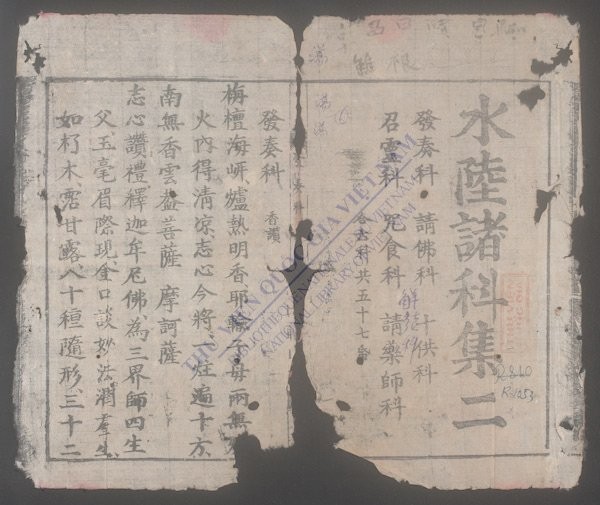 水陸諸科集二
發奏科 請佛科 十供科
召靈科 咒食科 請藥師科
合六科共五十七張
發奏科 香讚
梅檀海岍爐爇明香耶輸子母兩無
火內得清凉志心今將一炷遍十方
南無香雲蓋菩薩 摩訶薩
志心讚禮釋迦牟尼佛為三界師四生
父玉毫眉際現金口談妙法潤羣生
如朽木露甘露八十種隨形三十二
THƯ VIỆN QUỐC GIA VIỆT NAM
BIBLIOTHEQUE NATIONALE DU VIETNAM
NATIONAL LIBRARY OF VIETNAM